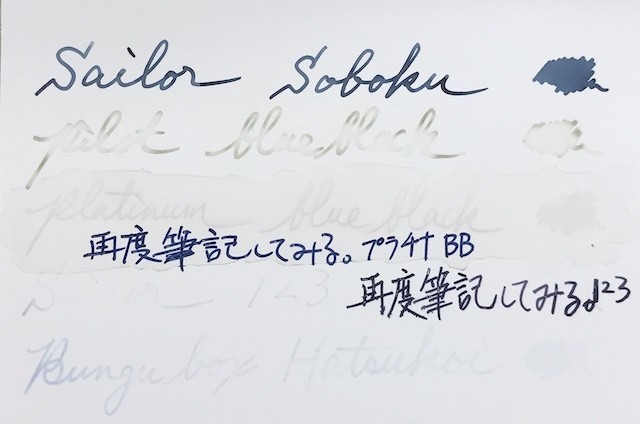 Sailor Soboku
pilot blue black
platinum blue black
再度筆記してみる。プラチナBB
再度筆記してみる。123
123
Bungubox Hatsukoi